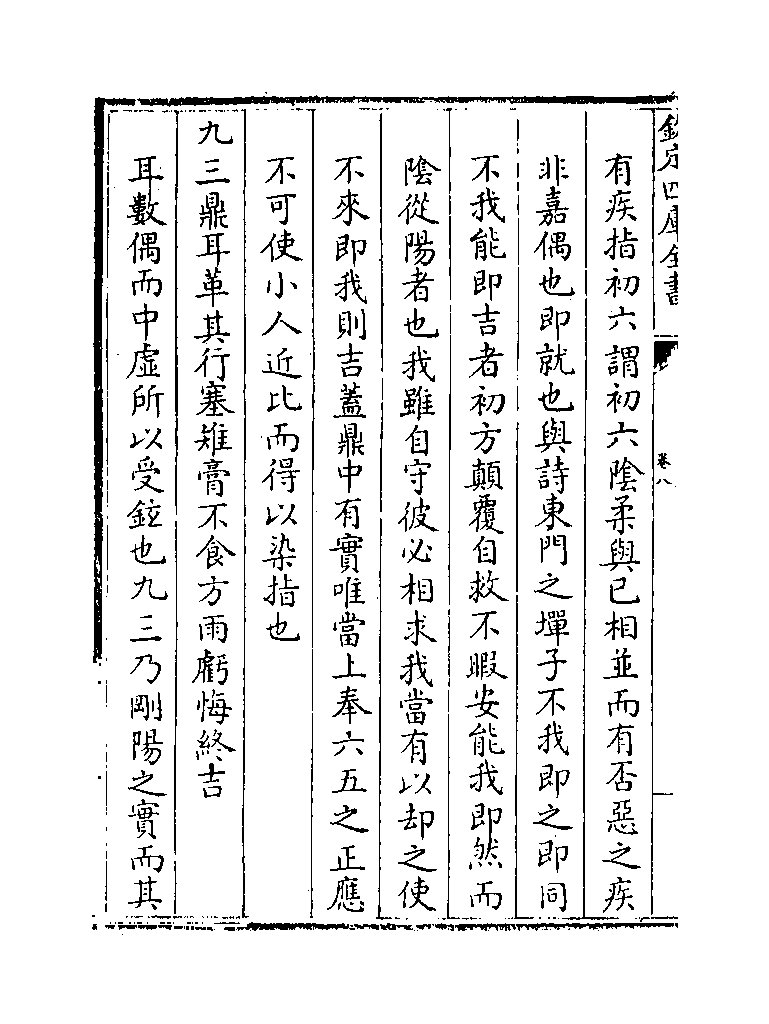 欽定四庫全書
卷八
有疾指初六謂初六陰柔與已相並而有否惡之疾
非嘉偶也即就也與詩東門之墠子不我即之即同
不我能即吉者初方顛覆自救不暇安能我即然而
陰從陽者也我雖自守彼必相求我當有以却之使
不來即我則吉蓋鼎中有實唯當上奉六五之正應
不可使小人近比而得以染指也
九三鼎耳革其行塞雉膏不食方雨虧悔終吉
耳數偶而中虛所以受鉉也九三乃剛陽之實而其